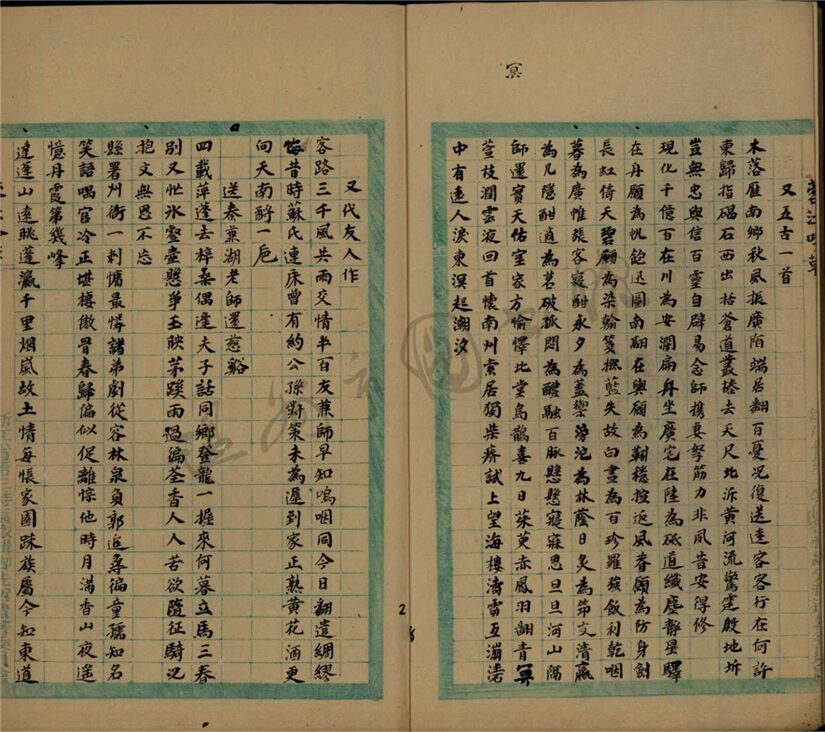 冥
又五古一首
木落雁南鄉秋風振廣陌端居翻百憂況復送遠客客行在何許
東歸指碣石西出括蒼道叢誊去天尺北泝黃河流驚霆殷地坼
豈無忠與信百靈自辟易念師携妻孥筋力非夙昔安得修
現化千億百在川為安瀾扁舟坐廣宅在陸為砥道纖塵靜星驛
在舟願為帆飽迅圖南翮在輿願為靷穩控追風脊願為防身劍
長虹倚天碧願為染翰箋撫藍失故白晝為百珍羅飱飯利乾咽
暮為廣惟張客寢酣永夕為蓋禦滂沱為林蔭日炙為筇交清羸
為几隱酣適為茗破孤悶為醴融百脉懸懸寤寐思旦旦河山隔
師還實天佑室家方愉懌北堂烏鵲喜九日茱萸赤鳳羽翻青冥
荳枝潤雲液回首懷南州索居獨柴瘠試上望海樓濤雷互漰湱
中有遠人淚東溟起潮汐
又代友人作
客路三千風共雨交情半百友兼師早知嗚咽同今日翻遣綢繆
悔昔時蘇氏連床曾有約公孫對策未為遲到家正熟黃花酒更
向天南酹一卮
送秦蕖湖老師還慈谿
四載萍蓬去梓桑偶逢夫子話同鄉登龍一握來何暮立馬三春
別又忙氷壑壷懸爭玉映茅蹊雨過徧荃香人人苦欲隨征騎況
抱文無思不忘
縣署州衙一剌慵最憐諸弟劇從容林泉負郭追尋徧童孺知名
笑語喁官冷正堪棲傲骨春歸偏似促離悰他時月滿香山夜遥
憶丹霞第幾峰
達蓬山遠眺蓬瀛千里烟嵐故土情每悵家園踈族屬今知東道